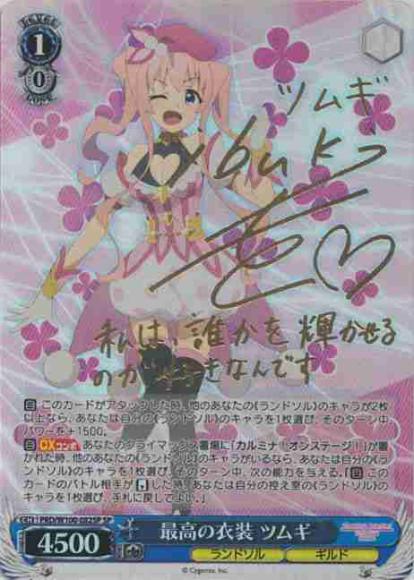 LEVEL
1
0
COST
ツムギ
私は、誰かを輝かせる
のが好きなんです
【自】 このカードがアタックした時、他のあなたの《ランドソル》のキャラが2枚
以上なら、あなたは自分の《ランドソル》のキャラを1枚選び、そのターン中、
パワーを+1500。
【自】 CXコンボ あなたのクライマックス置場に「カルミナ!オンステージ!」が置
かれた時、他のあなたの《ランドソル》のキャラがいるなら、あなたは自分の《ランドソル》
のキャラを1枚選び、そのターン中、次の能力を与える。『【自】 この
カードのバトル相手が
のキャラを1枚選び、手札に戻してよい。』
PRD/W100-082SP SP
4500
最高の衣装 ツムギ
ランドソル
ギルド
© Cygames, Inc.